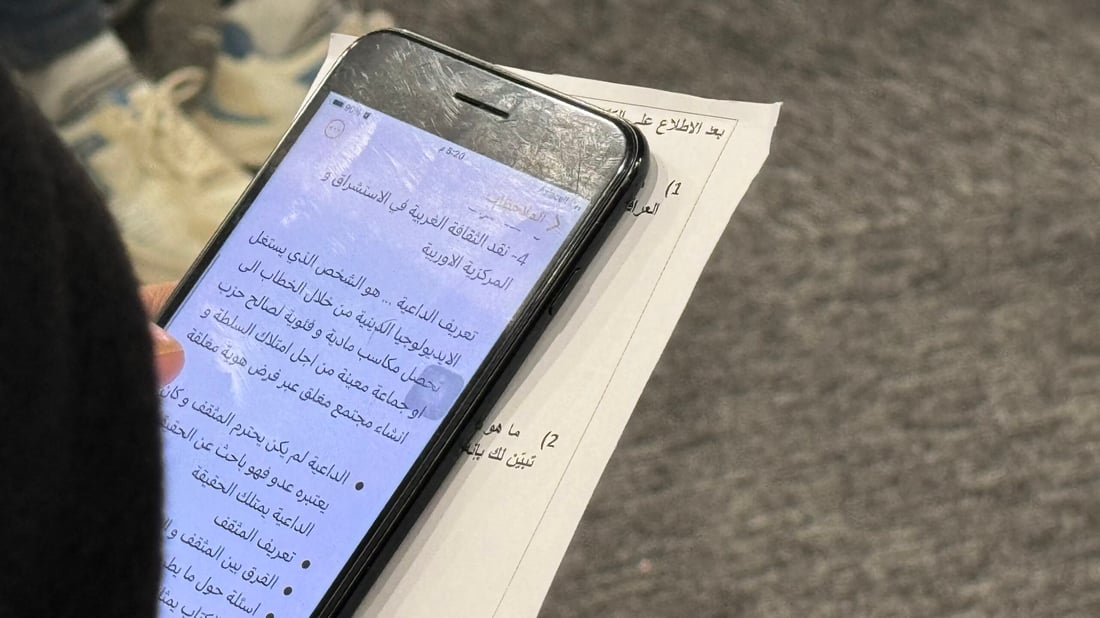 90%
5:20 م
الملاحظات
4- نقد الثقافة الغربية في الاستشراق و
المركزية الاوربية
تعريف الداعية ... هو الشخص الذي يستغل
الايديولوجيا الدينية من خلال الخطاب الى
تحصل مكاسب مادية و فئوية لصالح حزب
او جماعة معينة من اجل امتلاك السلطة و
انشاء مجتمع مغلق عبر فرض هوية مغلقة
• الداعية لم يكن يحترم المثقف و كان
يعتبره عدو فهو باحث عن
الداعية يمتلك الحقيقة
• تعريف المثقف
• الفرق بين المثقف و
• اسئلة حول ما
بعد الاطلاع على
1)
2) ما هو
تبيّن لك